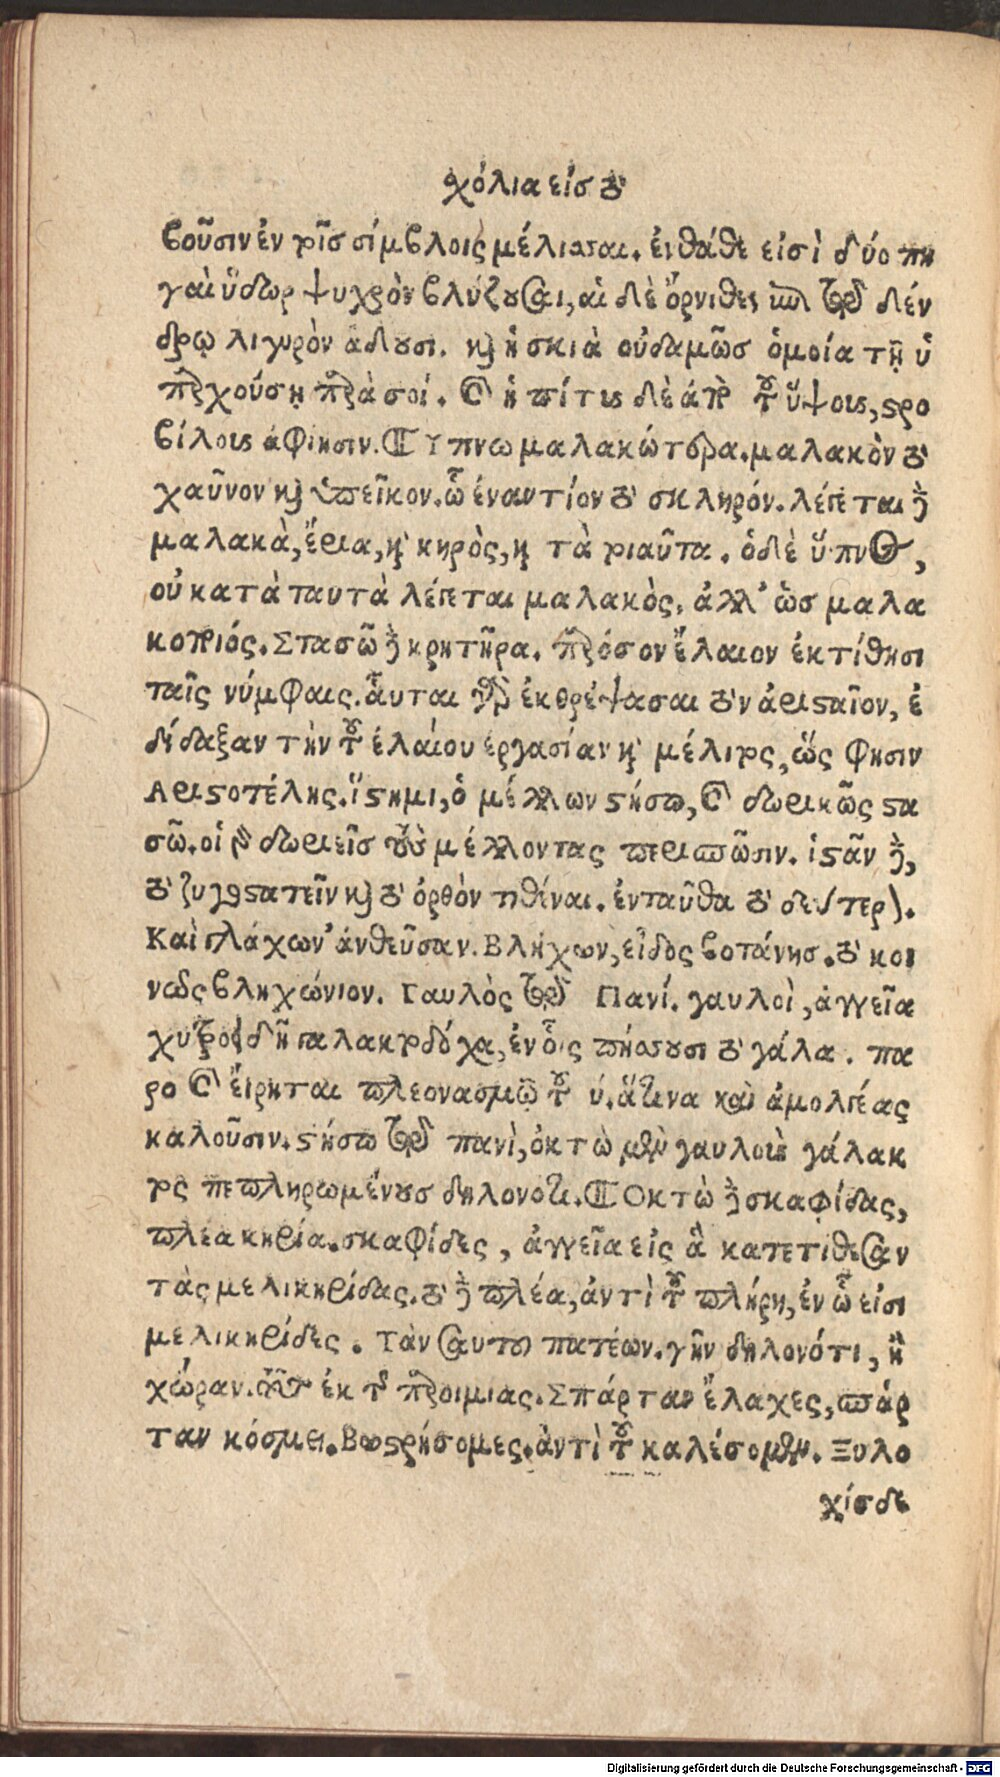 χόλια εἰσ τὸ
βοῦσιν ἐν τοῖσ σίμβλοις μέλισσαι. ἐνθάδε εἰσὶ δύο πη
γαὶ ὕδωρ ψυχρὸν βλύζουσαι, αἱ δὲ ὄρνιθες ἐπὶ τῷ δέν
δρῳ λιγυρὸν ἄδουσι. καὶ ἡ σκιὰ οὐδαμῶσ ὁμοία τῇ ὑ
παρχούσῃ παρὰ σοί. καὶ ἡ πίτυς δὲ ἀπὸ τοῦ ὕψους, στρο
βίλους ἀφίησιν. Υπνω μαλακώτερα. μαλακὸν τὸ
χαῦνον καὶ ὑπεῖκον. ᾧ ἐναντίον τὸ σκληρόν. λέγεται δὲ
μαλακὰ, ἔρια, καὶ κηρὸς, καὶ τὰ τοιαῦτα. ὁ δὲ ὕπνος,
οὐ κατὰ ταυτὰ λέγεται μαλακὸς, ἀλλ' ὡσ μαλα
κοποιός. Στασῶ δὲ κρητῆρα. παρόσον ἔλαιον ἐκτίθησι
ταῖς νύμφαις. ἇυται γὰρ ἐκθρέψασαι τὸν ἀρισταῖον, ἐ
δίδαξαν τὴν τοῦ ἐλαίου ἐργασίαν καὶ μέλιτος, ὥς φησιν
Αριστοτέλης. ἵστημι, ὁ μέλλων στήσω, καὶ δωρικῶς στα
σῶ. οἱ γὰρ δωριεῖσ τοὺς μέλλοντας περισπῶσιν. ἱστᾶν δὲ,
τὸ ζυγοστατεῖν καὶ τὸ ὀρθὸν τιθέναι. ἐνταῦθα τὸ δεύτερον.
Καὶ γλάχων' ἀνθεῦσαν. Βλήχων, εἶδος βοτάνησ. τὸ κοι
νῶς βληχώνιον. Γαυλὸς τῷ Πανί. γαυλοὶ, ἀγγεῖα
χυτροειδῆ γαλακτοδόχα, ἐν οἷς πήσσουσι τὸ γάλα. πα
ρο καὶ εἴρηται πλεονασμῷ τοῦ ὑ. ἅτινα καὶ ἀμολγέας
καλοῦσιν. στήσω τῷ πανὶ, ὀκτὼ μὲν γαυλοὺς γάλακ
τος πεπληρωμένουσ δηλονότι. Οκτὼ δὲ σκαφίδας,
πλέα κηρία. σκαφίδες, ἀγγεῖα εἰς ἃ κατετίθεσαν
τὰς μελικηρίδας. τὸ δὲ πλέα, ἀντὶ τοῦ πλήρη, ἐν ᾧ εἰσι
μελικηρίδες. Τὰν σαυτοῦ πατέων. γῆν δηλονότι, ἢ
χώραν. ἐκ τῆς παροιμιας. Σπάρταν ἔλαχες, σπάρ
ταν κόσμει. Βωστρήσομες. ἀντὶ τοῦ καλέσομεν. Ξυλο
χίσδε